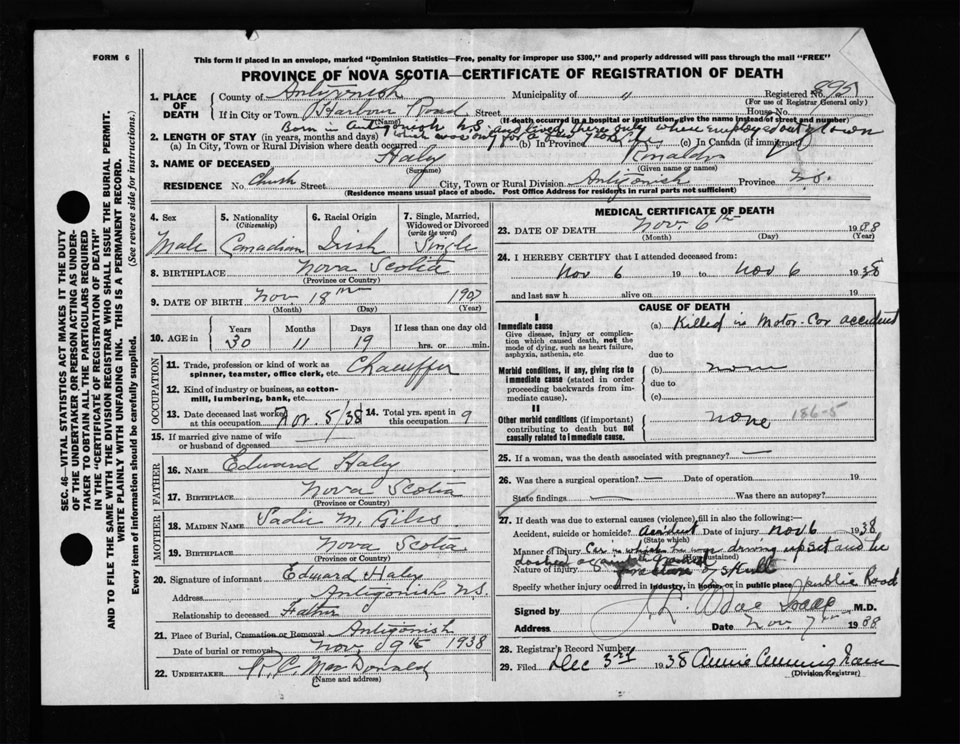 FORM 6
This form if placed in an envelope, marked "Dominion Statistics—Free, penalty for improper use $300," and properly addressed will pass through the mail "FREE"
PROVINCE OF NOVA SCOTIA—CERTIFICATE OF REGISTRATION OF DEATH
Registered No.
(For use of Registrar General only)
1. PLACE OF DEATH
County of Antigonish Municipality of "
If in City or Town Harbour Road Street House No.
(Name) (If death occurred in a hospital or institution, give the name instead of street and number)
Born in Antigonish N.S. and lived there only when employed out of town
2. LENGTH OF STAY (in years, months and days)
(a) In City, Town or Rural Division where death occurred (b) In Province (c) In Canada (if immigrant)
3. NAME OF DECEASED Haley Ronald
(Surname) (Given name or names)
RESIDENCE No. Church Street City, Town or Rural Division Antigonish Province N.S.
(Residence means usual place of abode. Post Office Address for residents in rural parts not sufficient)
4. Sex Male
5. Nationality (Citizenship) Canadian
6. Racial Origin Irish
7. Single, Married, Widowed or Divorced (write the word) Single
8. BIRTHPLACE Nova Scotia
(Province or Country)
9. DATE OF BIRTH Nov. 18th 1907
(Month) (Day) (Year)
10. AGE in Years 30 Months 11 Days 19 If less than one day old hrs. or min.
OCCUPATION
11. Trade, profession or kind of work as spinner, teamster, office clerk, etc. Chauffer
12. Kind of industry or business, as cotton-mill, lumbering, bank, etc.
13. Date deceased last worked at this occupation Nov. 5/38
14. Total yrs. spent in this occupation 9
15. If married give name of wife or husband of deceased —
FATHER
16. NAME Edward Haley
17. BIRTHPLACE Nova Scotia
(Province or Country)
MOTHER
18. MAIDEN NAME Sadie M. Gillis
19. BIRTHPLACE Nova Scotia
(Province or Country)
20. Signature of informant Edward Haley
Address Antigonish N.S.
Relationship to deceased Father
21. Place of Burial, Cremation or Removal Antigonish
Date of burial or removal Nov. 09th 1938
22. UNDERTAKER R. C. MacDonald
(Name and address)
MEDICAL CERTIFICATE OF DEATH
23. DATE OF DEATH Nov. 6th 1938
(Month) (Day) (Year)
24. I HEREBY CERTIFY that I attended deceased from:
Nov 6 19 to Nov 6 1938
and last saw h alive on 19
CAUSE OF DEATH
I
Immediate cause
Give disease, injury or complication which caused death, not the mode of dying, such as heart failure, asphyxia, asthenia, etc
(a) Killed in Motor-Car accident
due to
Morbid conditions, if any, giving rise to immediate cause (stated in order proceeding backwards from immediate cause).
(b) none
due to
(c)
II
Other morbid conditions (if important) contributing to death but not causally related to immediate cause.
none 186-5
25. If a woman, was the death associated with pregnancy? —
26. Was there a surgical operation? — Date of operation 19
State findings — Was there an autopsy?
27. If death was due to external causes (violence) fill in also the following:—
Accident, suicide or homicide? Accident Date of injury Nov 6 1938
(State which)
Manner of injury Car in which he was driving upset and he
(How sustained)
Nature of injury of skull
Specify whether injury occurred in industry, in home, or in public place public Road
Signed by M.D.
Address Date Nov 7th 1938
28. Registrar's Record Number
29. Filed Dec 3rd 1938 Annie Cunningham
(Division Registrar)
SEC. 46—VITAL STATISTICS ACT MAKES IT THE DUTY OF THE UNDERTAKER OR PERSON ACTING AS UNDERTAKER TO OBTAIN ALL THE PARTICULARS REQUIRED IN THE "CERTIFICATE OF REGISTRATION OF DEATH"
AND TO FILE THE SAME WITH THE DIVISION REGISTRAR WHO SHALL ISSUE THE BURIAL PERMIT.
WRITE PLAINLY WITH UNFADING INK. THIS IS A PERMANENT RECORD.
Every item of information should be carefully supplied. (See reverse side for instructions.)